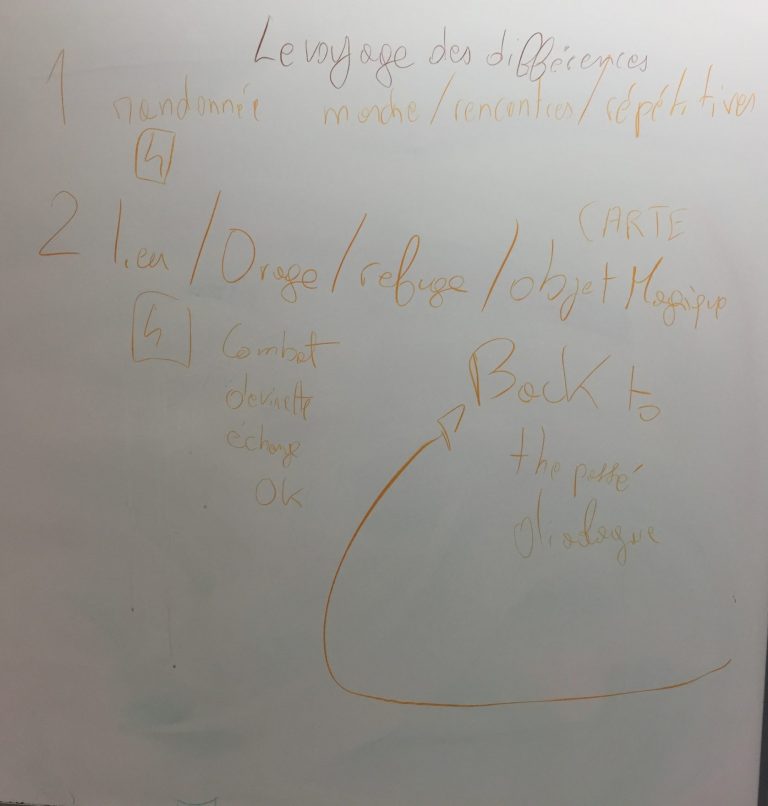 Le voyage des différences
1 randonnée marche / rencontres / répétitives
4
2 lieu / Orage / refuge / objet Magique
CARTE
4
Combat
devinette
échange
OK
Back to
the passé
dialogue